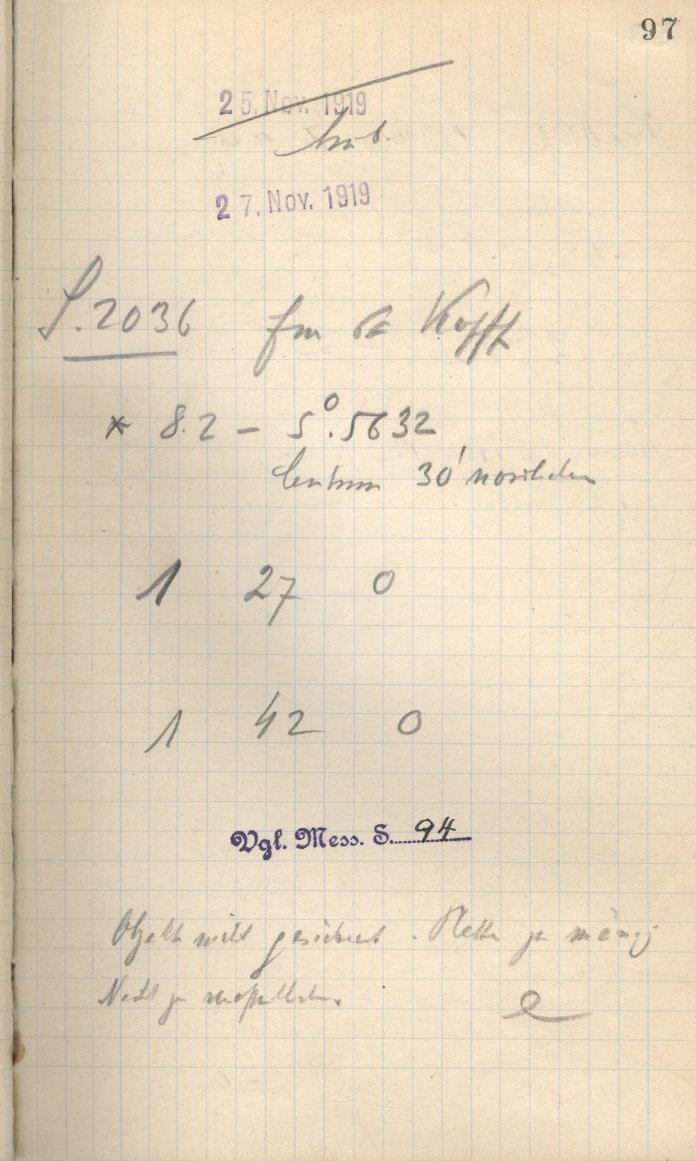 97
25. Nov. 1919
27. Nov. 1919
S. 2036 für Kopff
* 8.2 – 5°.5632
Centrum 30' nördlich
1 27 0
1 42 0
Vgl. Mess. S. 94
Objekt nicht gesichert. Platte zu
Nicht zu